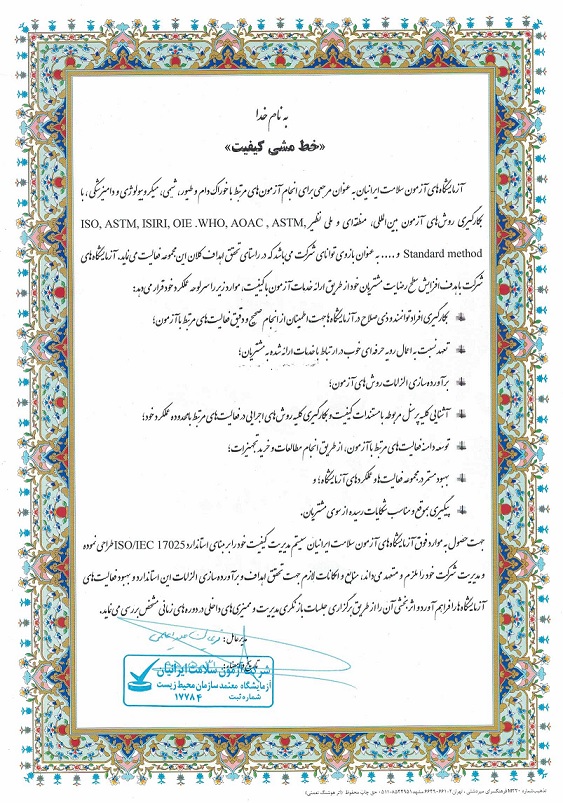 به نام خدا
«خط مشی کیفیت»
آزمایشگاه‌های آزمون سلامت ایرانیان به عنوان مرجعی برای انجام آزمون‌های مرتبط با خوراک دام و طیور، شیمی، میکروبیولوژی و دامپزشکی، با
بکارگیری روش‌های آزمون بین‌المللی، منطقه‌ای و ملی نظیر ISO, ASTM, ISIRI, OIE .WHO, AOAC , ASTM,
Standard method و .... به عنوان بازوی توانای شرکت می‌باشد که در راستای تحقق اهداف کلان این مجموعه فعالیت می‌نماید. آزمایشگاه‌های
شرکت با هدف افزایش سطح رضایت مشتریان خود از طریق ارائه خدمات آزمون با کیفیت، موارد زیر را سرلوحه عملکرد خود قرار می‌دهد:
بکارگیری افراد توانمند و ذی صلاح در آزمایشگاه‌ها جهت اطمینان از انجام صحیح و دقیق فعالیت‌های مرتبط با آزمون؛
تعهد نسبت به اعمال رویه حرفه‌ای خوب در ارتباط با خدمات ارائه شده به مشتریان؛
برآورده‌سازی الزامات روش‌های آزمون؛
آشنایی کلیه پرسنل مربوطه با مستندات کیفیت و بکارگیری کلیه روش‌های اجرایی در فعالیت‌های مرتبط با محدوده عملکرد خود؛
توسعه دامنه فعالیت‌های مرتبط با آزمون، از طریق انجام مطالعات و خرید تجهیزات؛
بهبود مستمر در مجموعه فعالیت‌ها و عملکردهای آزمایشگاه؛ و
پیگیری بموقع و مناسب شکایات رسیده از سوی مشتریان.
جهت حصول به موارد فوق آزمایشگاه‌های آزمون سلامت ایرانیان سیستم مدیریت کیفیت خود را بر مبنای استاندارد ISO/IEC 17025 طراحی نموده
و مدیریت شرکت خود را ملزم و متعهد می‌داند، منابع و امکانات لازم جهت تحقق اهداف و برآورده‌سازی الزامات این استاندارد و بهبود فعالیت‌های
آزمایشگاه‌ها فراهم آورد و اثربخشی آن را از طریق برگزاری جلسات بازنگری مدیریت و ممیزی‌های داخلی در دوره‌های زمانی مشخص بررسی می‌نماید.
مدیرعامل:
شرکت آزمون سلامت ایرانیان
آزمایشگاه معتمد سازمان محیط زیست
شماره ثبت
۱۷۷۸۴